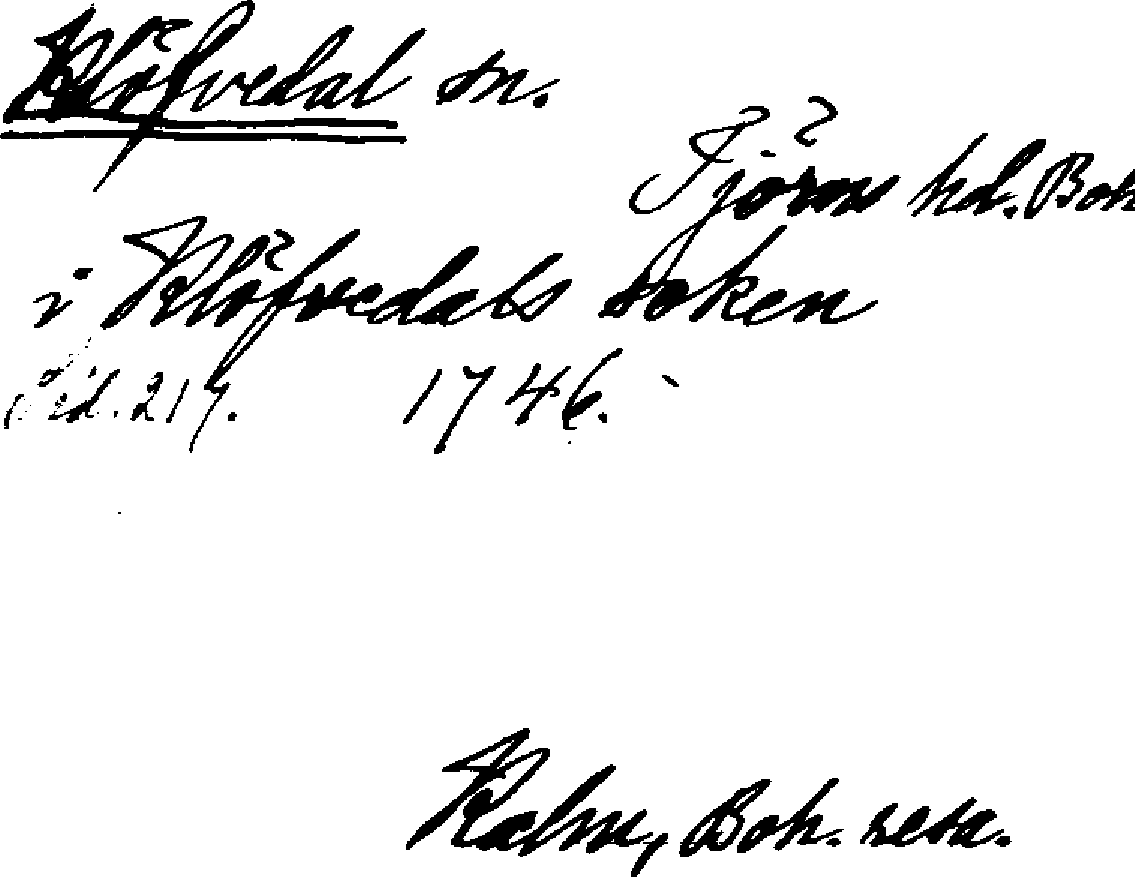 Klöfvedal sn.
Tjörns hd. Boh
i Klöfvedals soken
Sid. 217. 1746.
Kalm, Boh. resa.